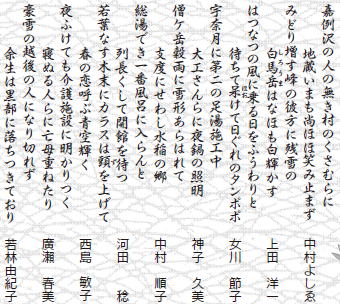 嘉例沢の人の無き村のくさむらに
地蔵いまも尚ほほ笑み止まず
中村よしゑ
みどり増す峰の彼方に残雪の
白馬岳はなほも白輝かす
上田 洋一
はつなつの風に乗る日をふうわりと
待ちて呆けて日ぐれのタンポポ
女川 節子
宇奈月に第二の足湯施工中
大工さんらに夜鍋の照明
神子 久美
僧ケ岳殿両に雪形あらはれて
支度にせわし水稲の郷
中村 順子
総湯てき一番風呂に入らんと
列長くして開館を待つ
河田 稔
若葉なす木末にカラスは頸を上げて
春の恋呼ぶ青空輝く
西島 敏子
夜ふけても介護施設に明かりつく
寝ぬる人らに亡母重ねたり
廣瀬 春美
豪雪の越後の人になり切れず
余生は黒部に落ちつきており
若林由紀子